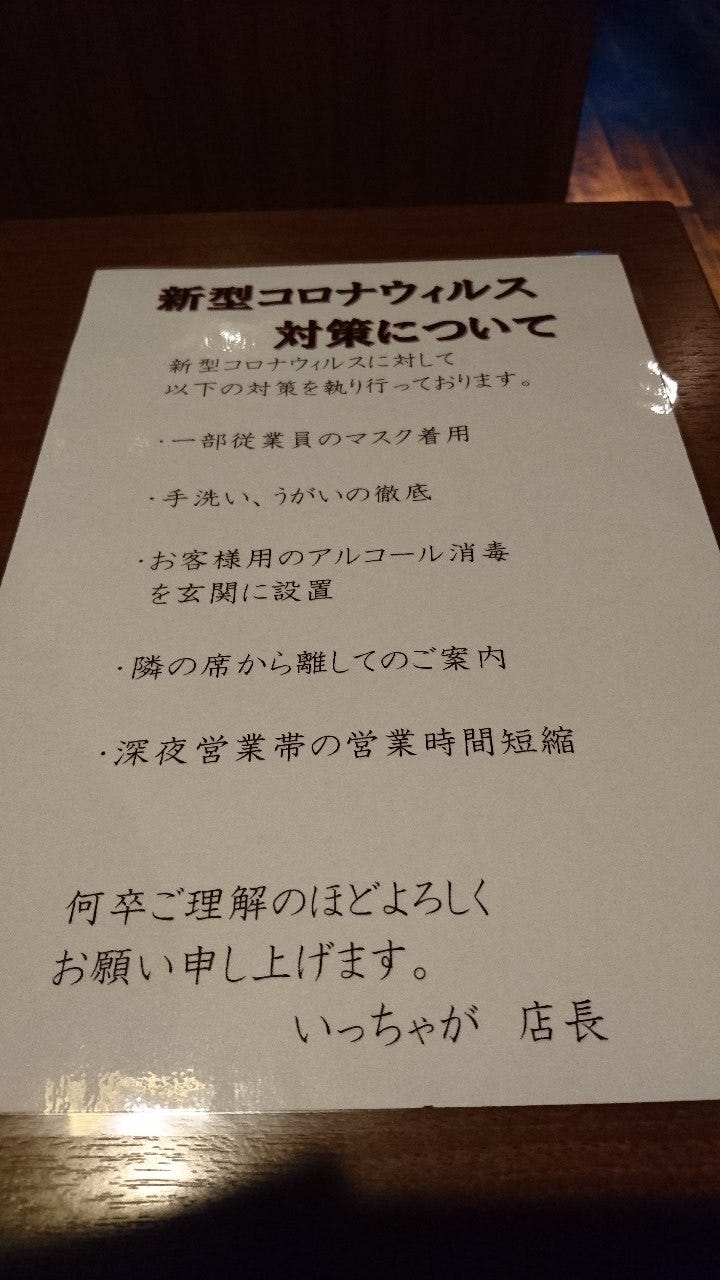 新型コロナウィルス
対策について
新型コロナウィルスに対して
以下の対策を執り行っております。
・一部従業員のマスク着用
・手洗い、うがいの徹底
・お客様用のアルコール消毒
を玄関に設置
・隣の席から離してのご案内
・深夜営業帯の営業時間短縮
何卒ご理解のほどよろしく
お願い申し上げます。
いっちゃが　店長